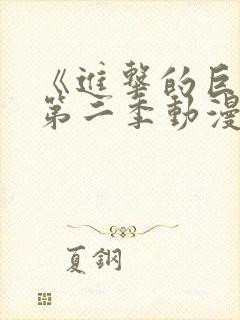 《進擊的巨
第二季動漫
夏鋼